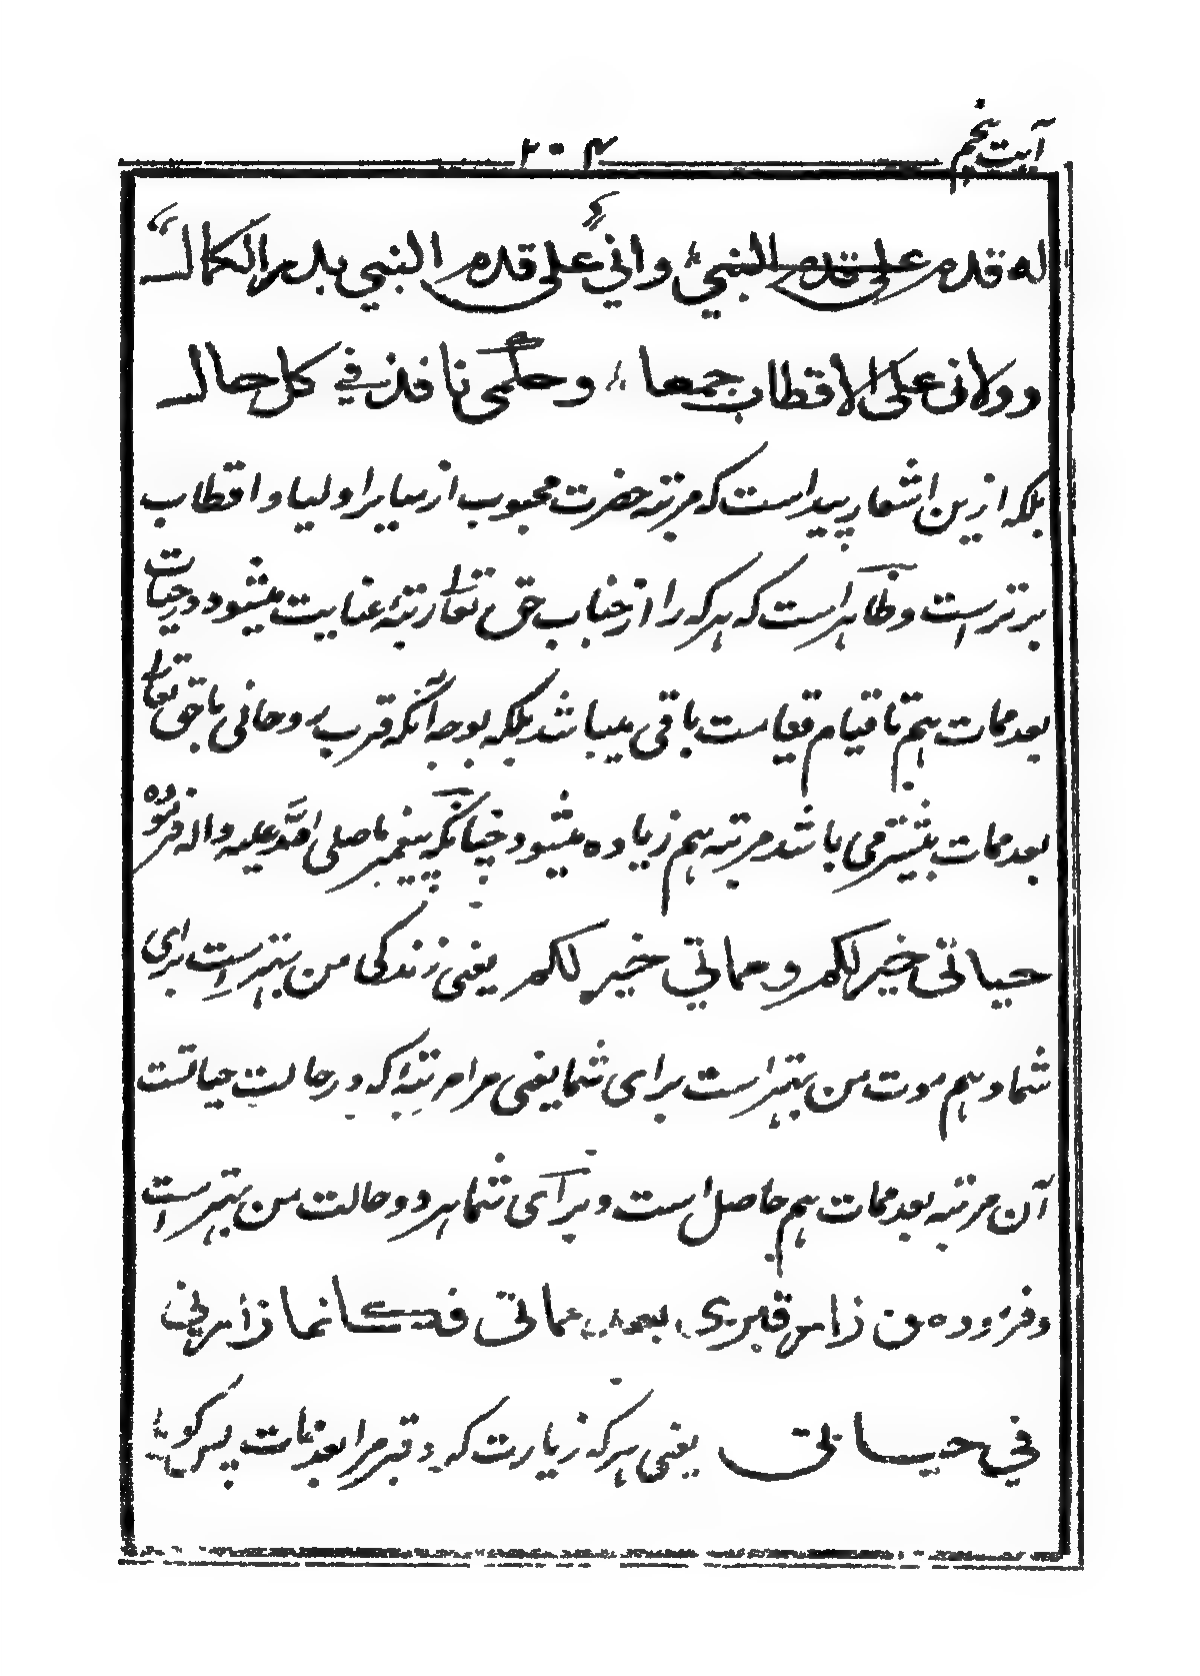 آیت پنجم
۲۰۴
له قدم علی قدم النبی وانی علی قدم النبی بدر الکمال
وولانی علی الاقطاب جمعا وحکمی نافذ فی کل حال
بلکه ازین اشعار پیداست که مرتبه حضرت محبوب از سایر اولیا و اقطاب
برترست وظاهراست که هرکه را از جناب حق تعالی رتبهٔ عنایت میشود در حیات
بعد ممات هم تا قیام قیامت باقی میباشد بلکه بوجه آنکه قرب روحانی با حق تعالی
بعد ممات بیشتر می باشد مرتبه هم زیاده میشود چنانکه پیغمبر ما صلی الله علیه واله فرموده
حیاتی خیر لکم و مماتی خیر لکم یعنی زندگی من بهتر است برای
شما و هم موت من بهتر است برای شما یعنی مرا مرتبهٔ که در حالت حیاتست
آن مرتبه بعد ممات هم حاصل است و برای شما هر دو حالت من بهتر است
و فرموده من زار قبری بعد مماتی فکانما زارنی
فی حیاتی یعنی هر که زیارت کرد قبر مرا بعد ممات پس گویا